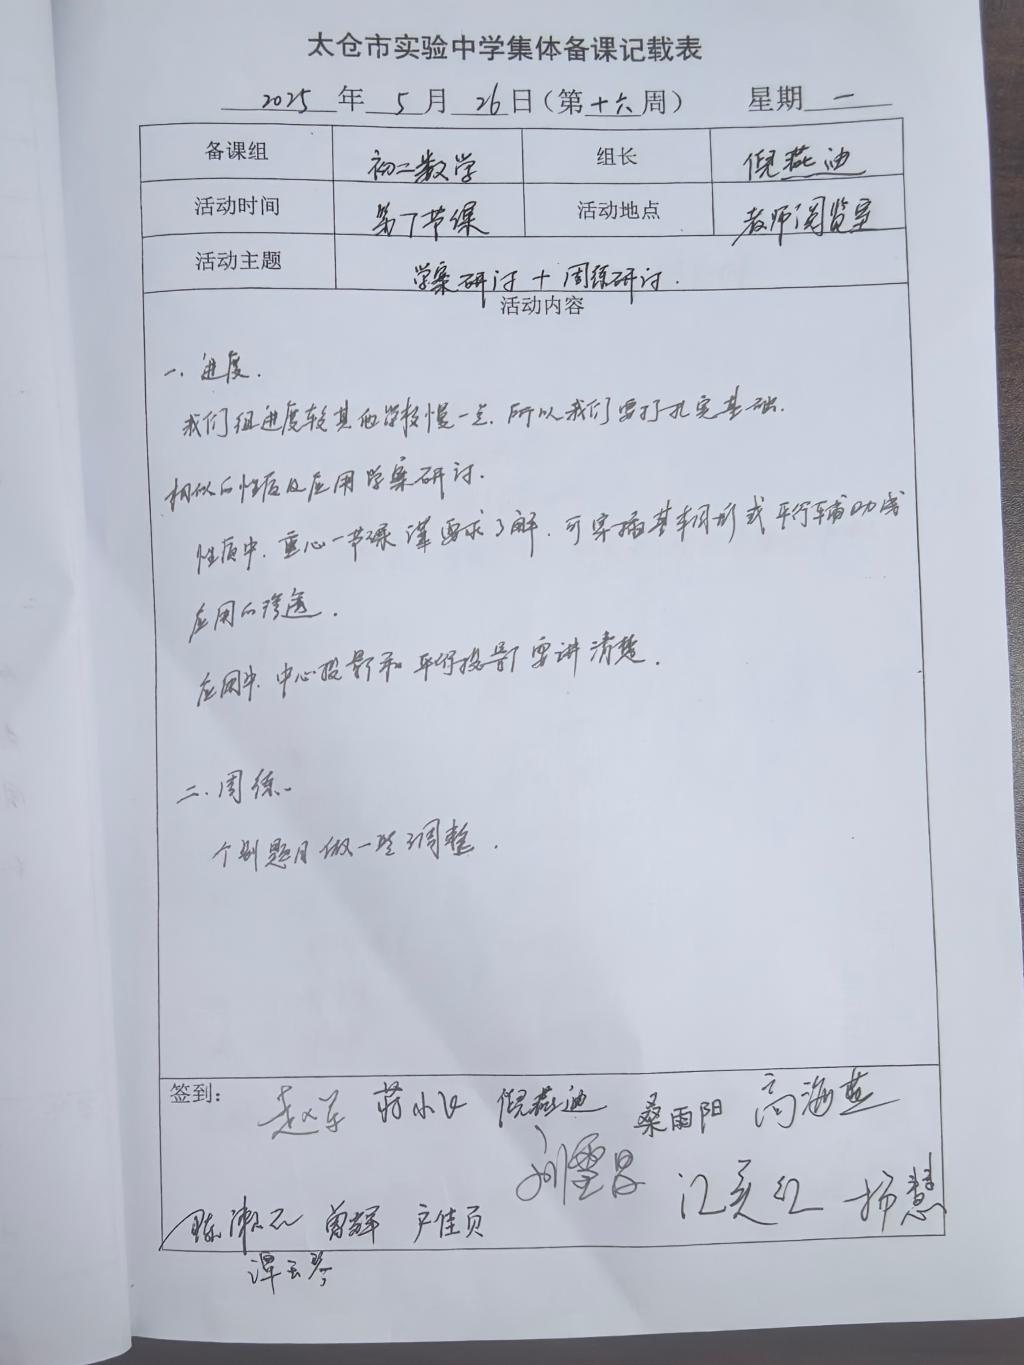 太仓市实验中学集体备课记载表
2025 年 5 月 26 日(第十六周) 星期 一
备课组 初二数学 组长 倪燕迪
活动时间 第7节课 活动地点 教师阅览室
活动主题 学案研讨 + 周练研讨.
活动内容
一. 进度.
我们组进度较其他学校慢一点. 所以我们要打扎实基础.
相似的性质及应用学案研讨.
性质中. 重心一节课 谨要求了解. 可穿插基本图形或平行辅助线
应用的渗透.
应用中. 中心投影和平行投影要讲清楚.
二. 周练.
个别题目做一些调整.
签到: 倪燕迪 桑雨阳 高海燕
江美红 杨慧
曾辉